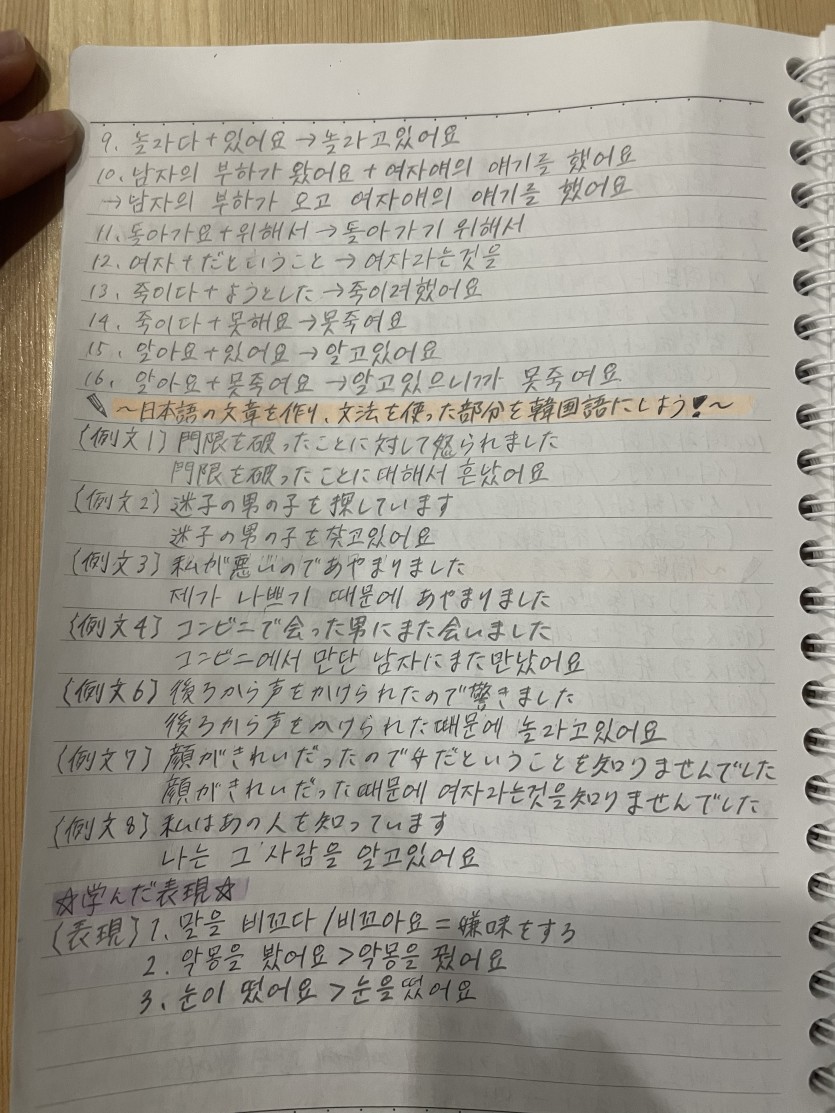 9.놀라다+있어요→놀라고있어요
10. 남자의 부하가 왔어요 + 여자애의 얘기를 했어요
→남자의 부하가 오고 여자애의 얘기를 했어요
11. 돌아가요+위해서→돌아가기 위해서
12. 여자+だということ→여자라는것을
13. 죽이다+ようとした→죽이려했어요
14. 죽이다+못해요→못죽여요
15. 알아요+있어요→알고있어요
16. 알아요+못죽여요→알고있으니까 못죽여요
～日本語の文章を作り、文法を使った部分を韓国語にしよう!～
(例文1) 門限を破ったことに対して怒られました
門限を破ったことに대해서 혼났어요
(例文2) 迷子の男の子を探しています
迷子の男の子を찾고있어요
(例文3) 私が悪いのであやまりました
제가 나쁘기 때문에 あやまりました
(例文4) コンビニで会った男にまた会いました
コンビニ에서 만난 남자にまた만났어요
(例文6) 後ろから声をかけられたので驚きました
後ろから声をかけられた때문에 놀라고있어요
(例文7) 顔がきれいだったので女だということを知りませんでした
顔がきれいだった때문에 여자라는것을知りませんでした
(例文8) 私はあの人を知っています
나는 그 사람을 알고있어요
☆学んだ表現☆
(表現) 1. 말을 비꼬다/비꼬아요=嫌味をする
2. 악몽을 봤어요>악몽을 꿨어요
3. 눈이 떴어요>눈을떴어요